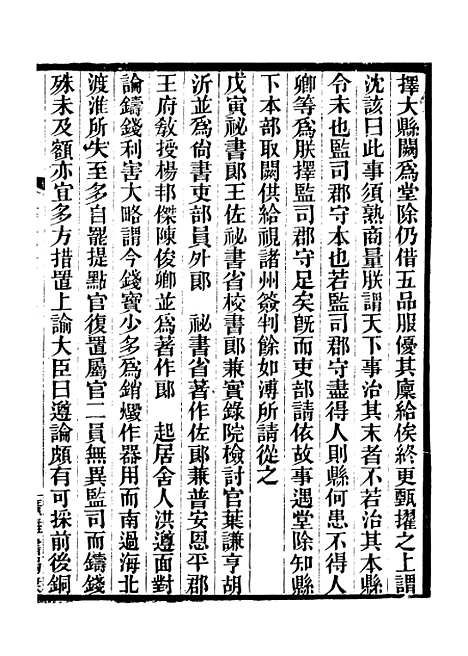 擇大縣闕爲堂除仍借五品服優其廩給俟終更甄擢之上謂
沈該曰此事須熟商量朕謂天下事治其末者不可治其本縣
令末也監司郡守本也若監司郡守盡得人則縣何患不得人
卿等爲朕擇監司郡守足矣旣而吏部請依故事遇堂除知縣
下本部取闕供給視諸州簽判餘如溥所請從之
戊寅祕書郎王佐祕書省校書郎兼實錄院檢討官葉謙亨胡
沂並爲尙書吏部員外郎　祕書省著作佐郎兼普安恩平郡
王府敎授楊邦傑陳俊卿並爲著作郎　起居舍人洪遵面對
論鑄錢利害大略謂今錢寶少多爲銷燬作器用而南過海北
渡淮所失至多自罷提點官復置屬官二員無異監司而鑄錢
殊未及額亦宜多方措置上諭大臣曰遵論頗有可採前後銅